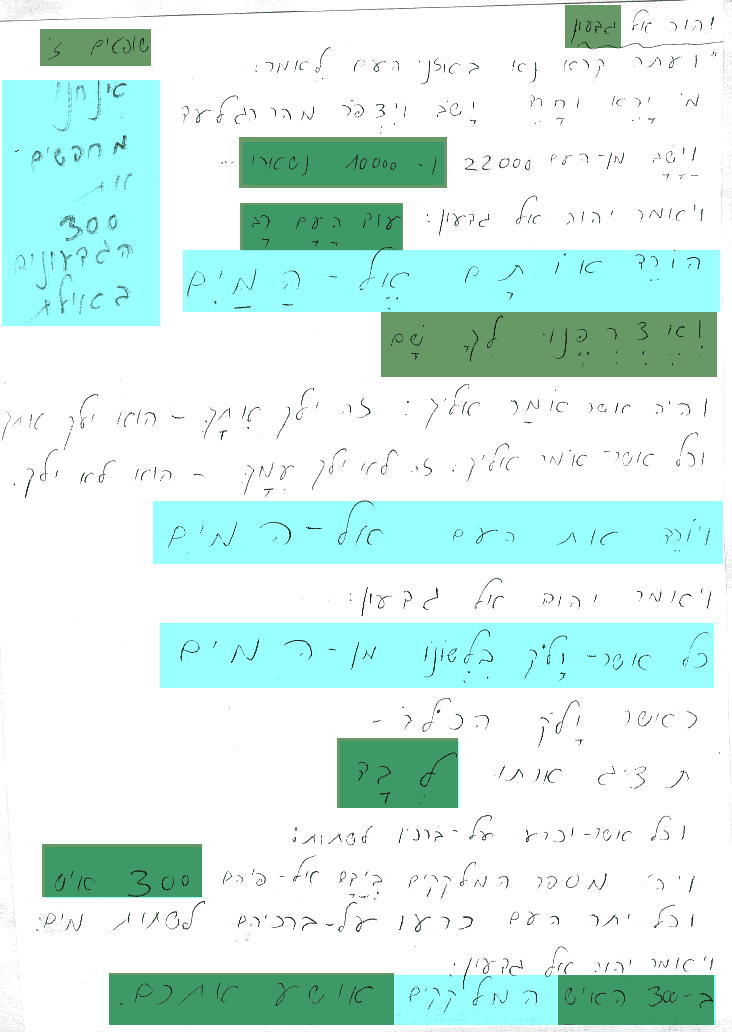 יהוה אל גבעון
שופטים ז'
"ועתה קרא נא באוזני העם לאמר:
מי יָרֵא וחָרֵד יָשֹב ויִצְפֹּר מהר הגלעד
וישָב מן-העם 22000 ו-10000 נשארו ...
ויאמר יהוה אל גבעון: עוד הָעָם רָב
הוֹרֵד אוֹתָם אֶל-הַמַיִם
וְאֶצְרְפֶנּוּ לְךָ שָׁם
והיה אשר אוֹמַר אליך: זה ילך אִתָּךְ - הוא ילך אתך
וכל אשר-אומר אליך: זה לא ילך עִמָךְ - הוא לא ילך.
ויוֹרֵד את העם אל-המים
ויאמר יהוה אל גבעון:
כל אשר-יָלֹק בִּלְשׁוֹנוֹ מן-המים
כאשר יָלֹק הכלב -
תציג אותו לְבָד
וכל אשר-יכרע על-ברכיו לשתות:
ויהי מספר המלקקים בְּיָדָם אל-פיהם 300 איש
וכל יתר העם כרעו על-ברכיהם לשתות מים:
ויאמר יהוה אל גבעון:
ב-300 האיש המלקקים אושיע אתכם.
אנחנו
מחפשים
את
300
הגדעונים
באילת